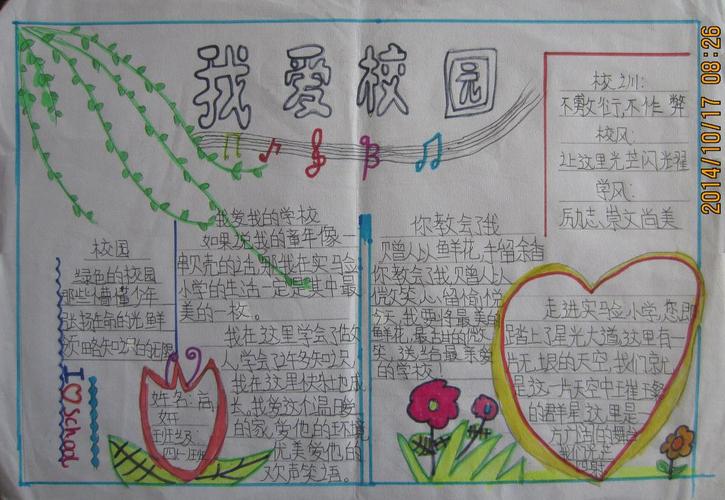 我爱校园
2014/10/17 08:26
校训:
不敷衍,不作弊
校风:
让这里光芒闪光耀
学风:
励志,崇文尚美
校园
绿色的校园
那些懵懂少年
张扬生命的光鲜
领略知识的无限
I
school
姓名:高
妍
班级
四
我爱我的学校
如果说我的童年像一
串贝壳的话,那我在实验
小学的生活一定是其中最
美的一枚。
我在这里学会了做
人,学会了许多知识,
我在这里快快地成
长。我爱这个温暖
的家,爱他的环境
优美爱他的
欢声笑语。
你教会了我
赠人以鲜花,手留余香
你教会了我,赠人以
微笑,心留愉悦
今天,我要将最美的
鲜花,最甜的微
笑,送给最亲爱
的学校!
走进实验小学,您即
踏上了星光大道,这里有一
片无垠的天空,我们就
是这一片天空中璀璨
的群星,这里是一
片广阔的舞台
我们就是